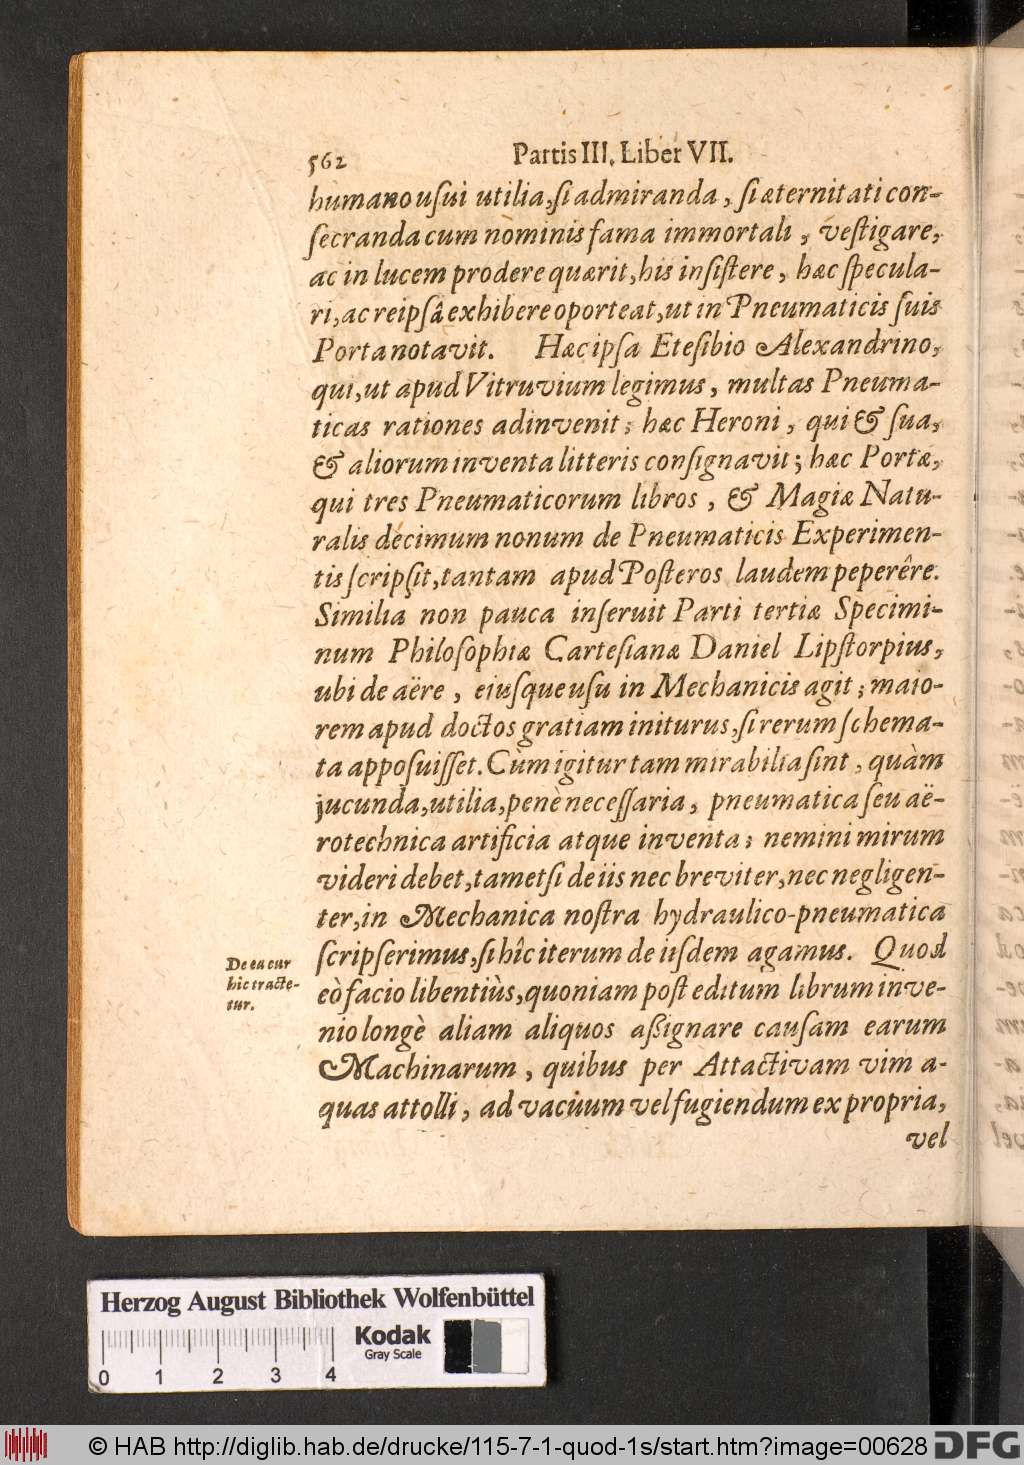 562 Partis III. Liber VII.
humano uſui utilia, ſi admiranda, ſi æternitati con-
ſecranda cum nominis fama immortali, veſtigare,
ac in lucem prodere quærit, his inſiſtere, hæc ſpecula-
ri, ac reipſâ exhibere oporteat, ut in Pneumaticis ſuis
Porta notavit. Hæc ipſa Eteſibio Alexandrino,
qui, ut apud Vitruvium legimus, multas Pneuma-
ticas rationes adinvenit; hæc Heroni, qui & ſua,
& aliorum inventa litteris conſignavit; hæc Portæ,
qui tres Pneumaticorum libros, & Magiæ Natu-
ralis decimum nonum de Pneumaticis Experimen-
tis ſcripſit, tantam apud Poſteros laudem peperêre.
Similia non pauca inſeruit Parti tertiæ Specimi-
num Philoſophiæ Carteſianæ Daniel Lipſtorpius,
ubi de aëre, ejuſque uſu in Mechanicis agit; maio-
rem apud doctos gratiam initurus, ſi rerum ſchema-
ta appoſuiſſet. Cùm igitur tam mirabilia ſint, quàm
jucunda, utilia, penè neceſſaria, pneumatica ſeu aë-
rotechnica artificia atque inventa; nemini mirum
videri debet, tametſi de iis nec breviter, nec negligen-
ter, in Mechanica noſtra hydraulico-pneumatica
ſcripſerimus, ſi hîc iterum de iiſdem agamus. Quod
De ea cur
hic tracte-
tur.
eò facio libentiùs, quoniam poſt editum librum inve-
nio longè aliam aliquos aßignare cauſam earum
Machinarum, quibus per Attactivam vim a-
quas attolli, ad vacuum vel fugiendum ex propria,
vel
Herzog August Bibliothek Wolfenbüttel
Kodak
Gray Scale
0 1 2 3 4
© HAB http://diglib.hab.de/drucke/115-7-1-quod-1s/start.htm?image=00628
DFG